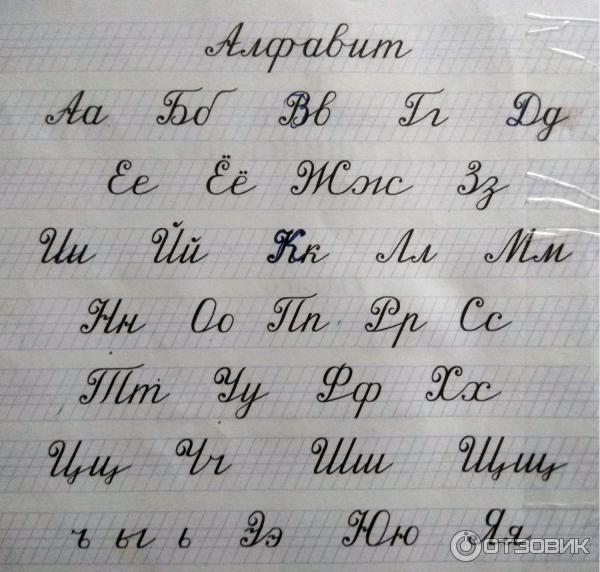 Алфавит
Аа Бб Вв Гг Дд
Ее Ёё Жж Зз
Ии Йй Кк Лл Мм
Нн Оо Пп Рр Сс
Тт Уу Фф Хх
Цц Чч Шш Щщ
ъ ы ь Ээ Юю Яя
ОТЗОВИК